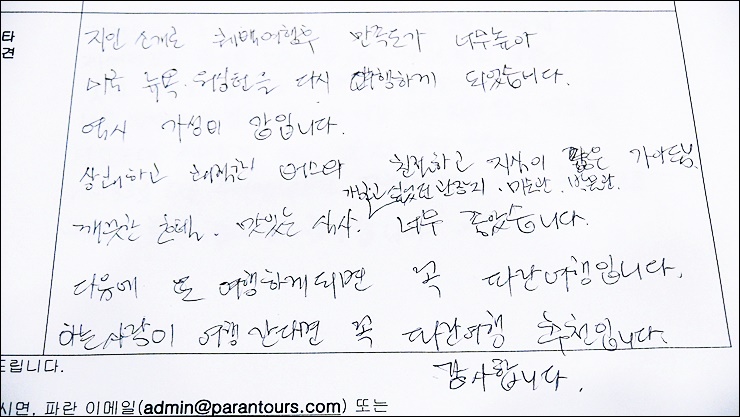 타
견
지인 소개로 혜택여행후 만족도가 너무높아
미국 뉴욕.워싱턴을 다시 여행하게 되었습니다.
역시 가성비 갑입니다.
하고 버스와 친절하고 지식이 많은 가이드님.
가보고 싶었던 관광지 . 미술관 . 박물관.
깨끗한 호텔. 맛있는 식사. 너무 좋았습니다.
다음에 또 여행하게되면 꼭 파란여행입니다.
아는사람이 여행간다면 꼭 파란여행 추천입니다.
감사합니다.
드립니다.
시면, 파란 이메일(admin@parantours.com) 또는